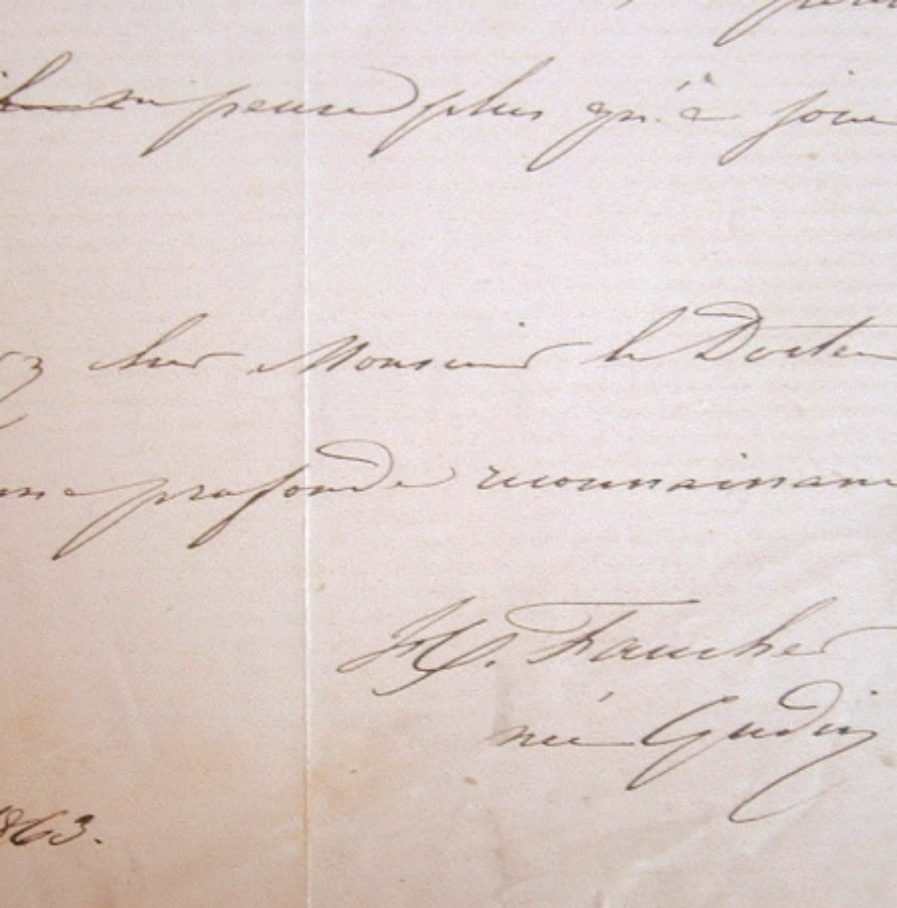 pense plus qu'à joui
ez cher Monsieur le Docteu
me profonde reconnaissanc
H. Faucher
née Gudin
1863.